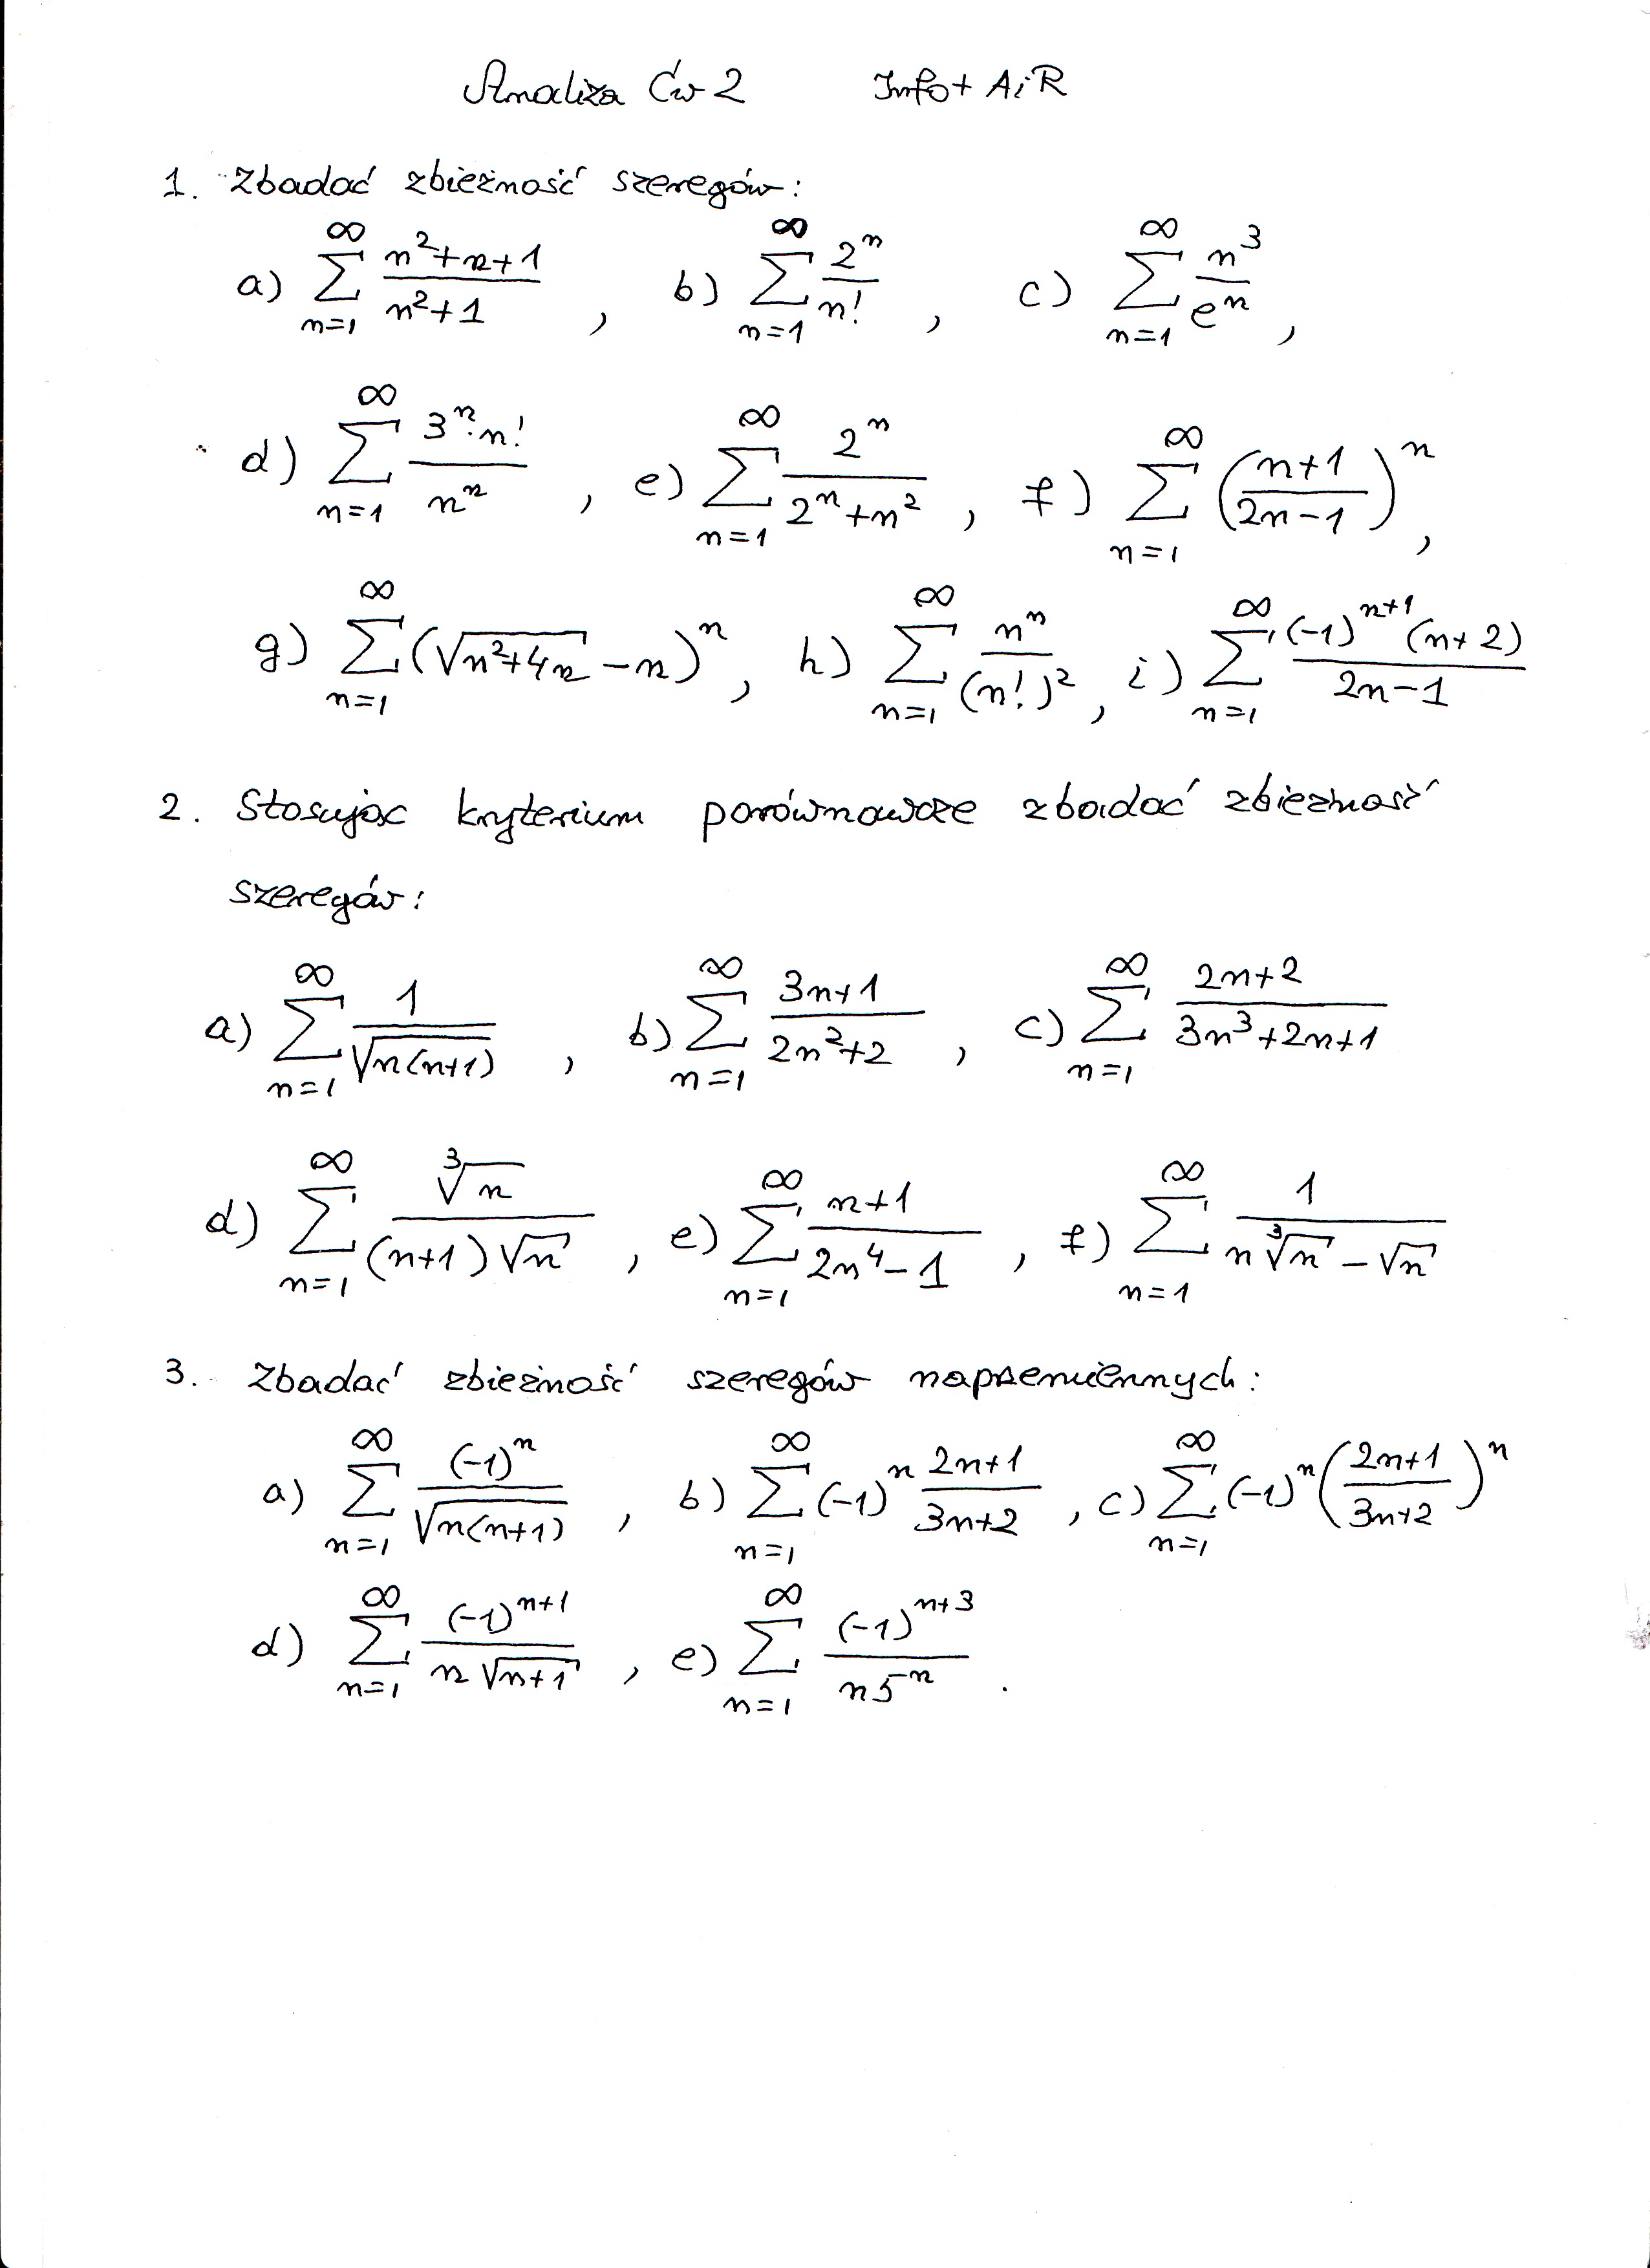 Analiza Ćw 2 Info + AiR
1. Zbadać zbieżność szeregów:
a) $\sum_{n=1}^{\infty} \frac{n^2+n+1}{n^2+1}$, b) $\sum_{n=1}^{\infty} \frac{2^n}{n!}$, c) $\sum_{n=1}^{\infty} \frac{n^3}{e^n}$,
d) $\sum_{n=1}^{\infty} \frac{3^n \cdot n!}{n^n}$, e) $\sum_{n=1}^{\infty} \frac{2^n}{2^n+n^2}$, f) $\sum_{n=1}^{\infty} \left(\frac{n+1}{2n-1}\right)^n$,
g) $\sum_{n=1}^{\infty} (\sqrt{n^2+4n}-n)^n$, h) $\sum_{n=1}^{\infty} \frac{n^n}{(n!)^2}$, i) $\sum_{n=1}^{\infty} \frac{(-1)^{n+1}(n+2)}{2n-1}$
2. Stosując kryterium porównawcze zbadać zbieżność
szeregów:
a) $\sum_{n=1}^{\infty} \frac{1}{\sqrt{n(n+1)}}$, b) $\sum_{n=1}^{\infty} \frac{3n+1}{2n^2+2}$, c) $\sum_{n=1}^{\infty} \frac{2n+2}{3n^3+2n+1}$
d) $\sum_{n=1}^{\infty} \frac{\sqrt[3]{n}}{(n+1)\sqrt{n}}$, e) $\sum_{n=1}^{\infty} \frac{n+1}{2n^4-1}$, f) $\sum_{n=1}^{\infty} \frac{1}{n\sqrt[3]{n}-\sqrt{n}}$
3. Zbadać zbieżność szeregów naprzemiennych:
a) $\sum_{n=1}^{\infty} \frac{(-1)^n}{\sqrt{n(n+1)}}$, b) $\sum_{n=1}^{\infty} (-1)^n \frac{2n+1}{3n+2}$, c) $\sum_{n=1}^{\infty} (-1)^n \left(\frac{2n+1}{3n+2}\right)^n$
d) $\sum_{n=1}^{\infty} \frac{(-1)^{n+1}}{n\sqrt{n+1}}$, e) $\sum_{n=1}^{\infty} \frac{(-1)^{n+3}}{n5^n}$.